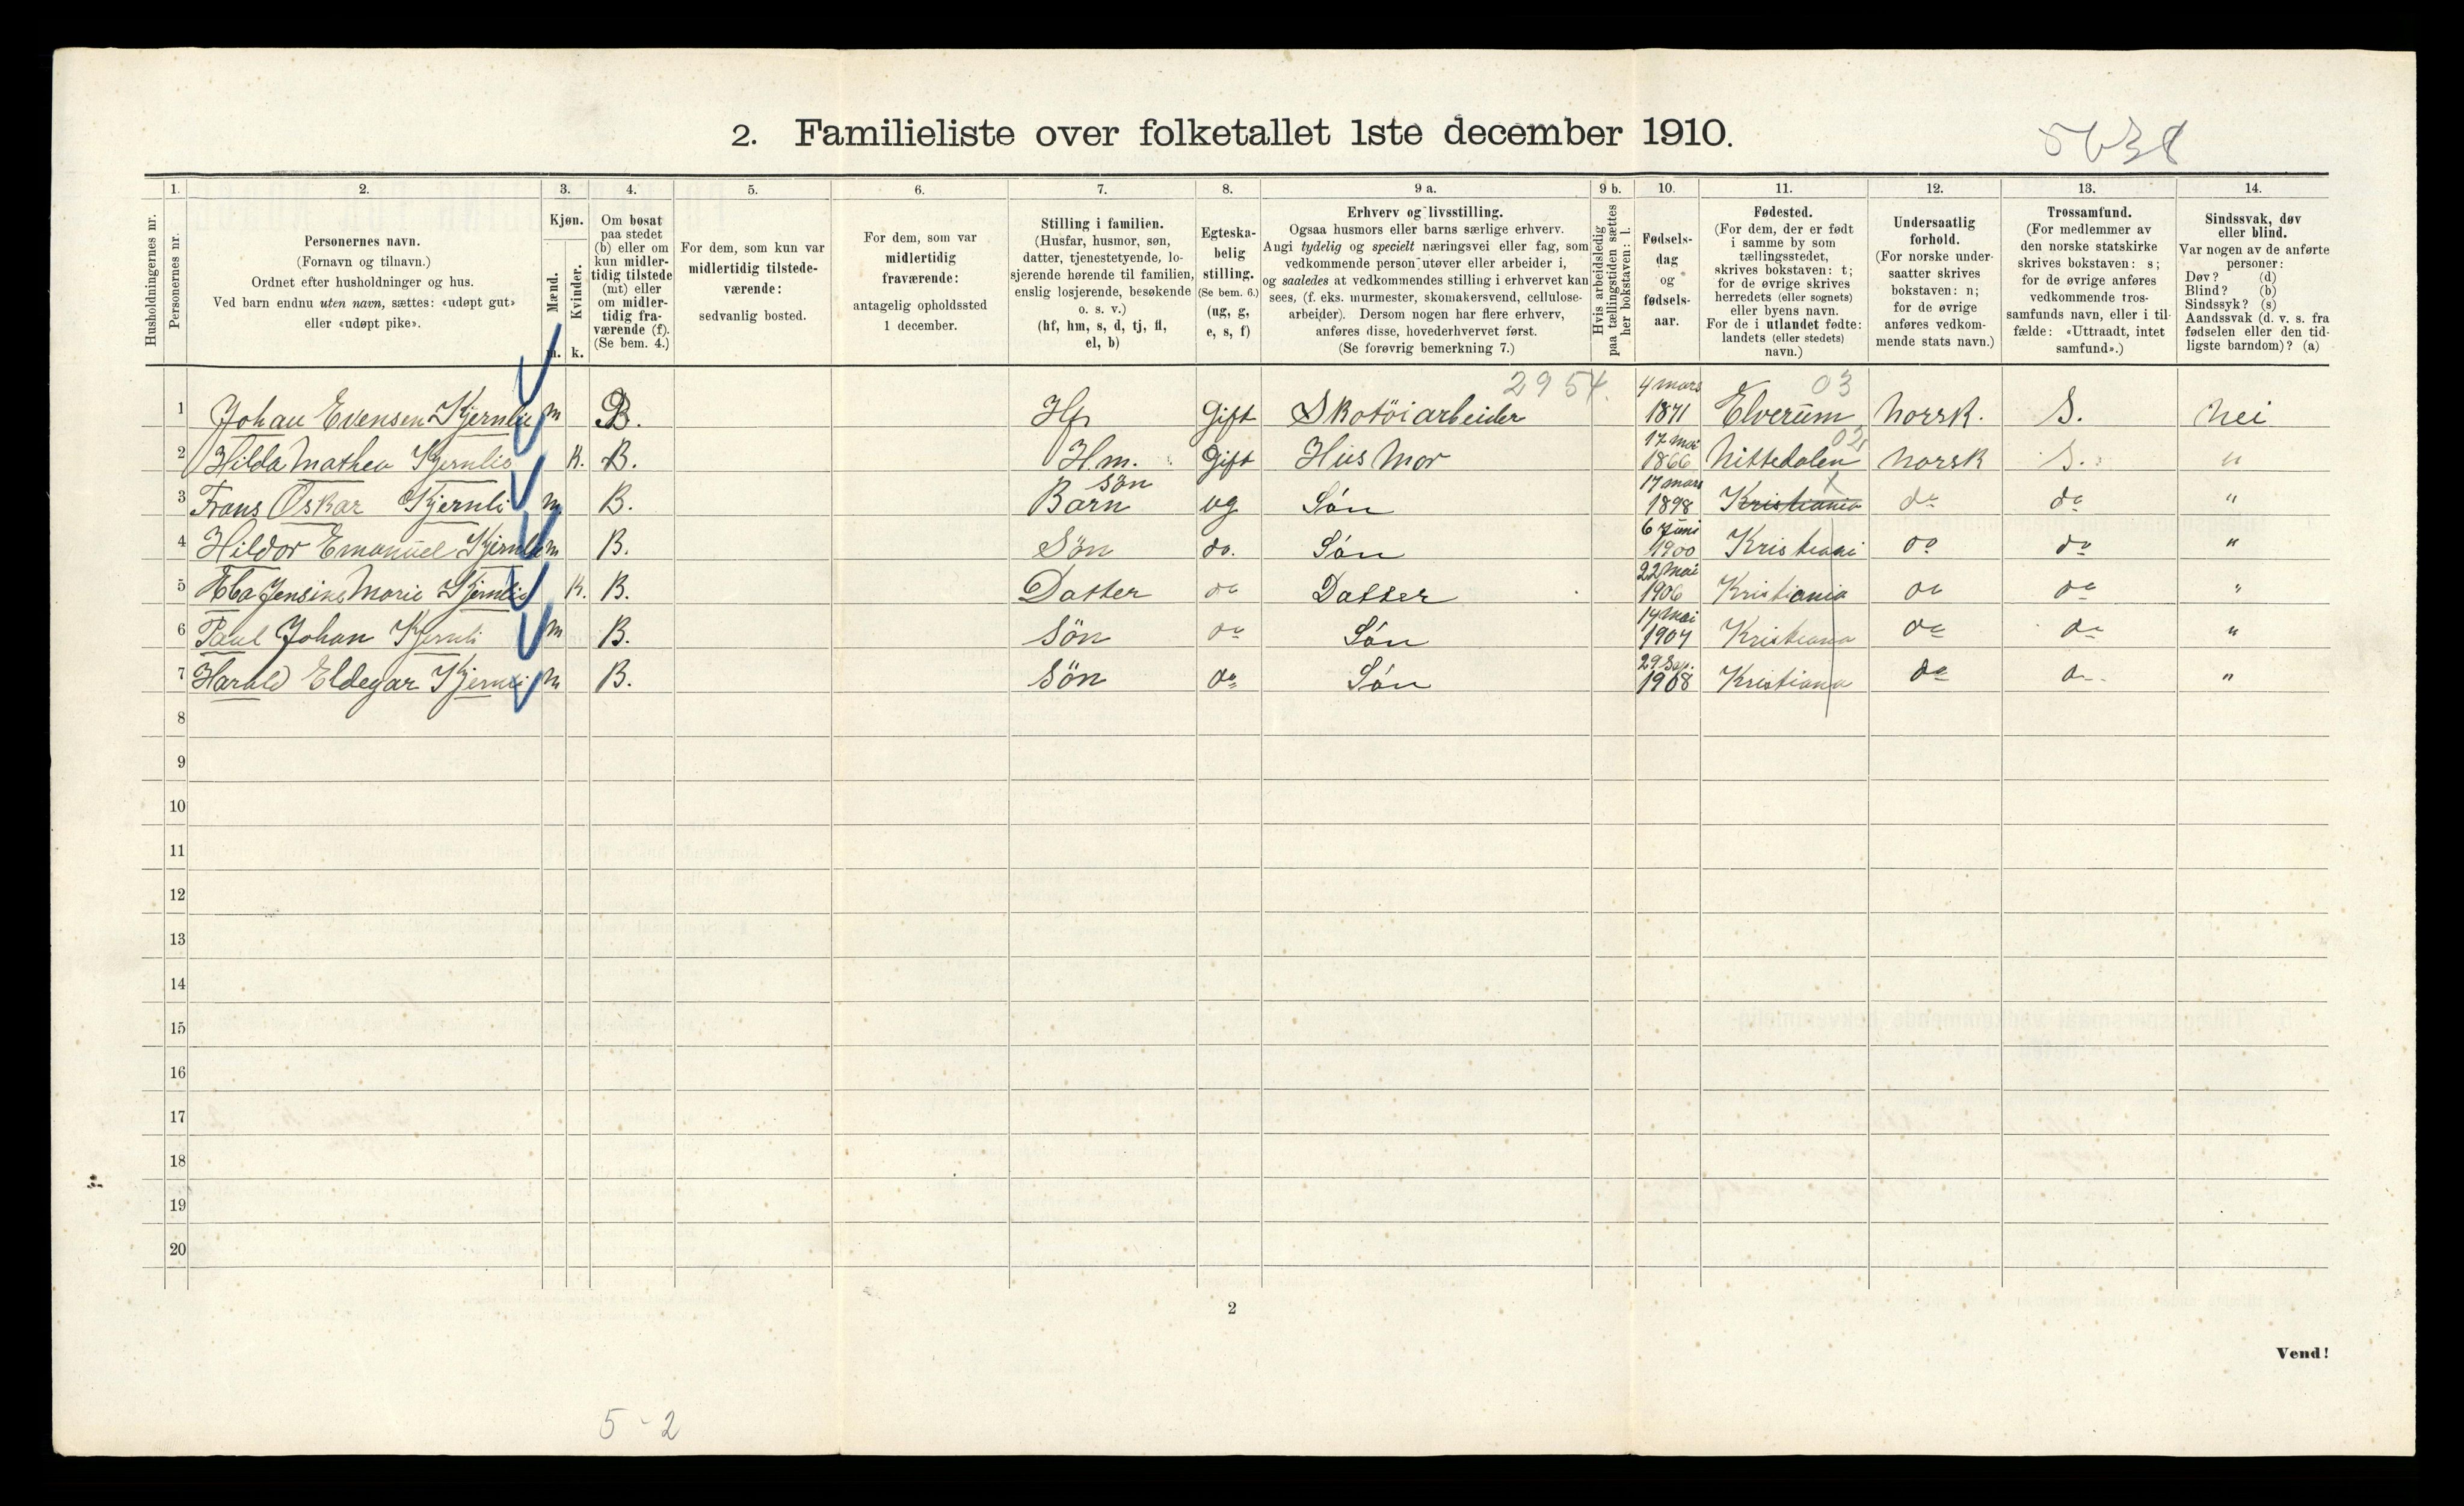 2. Familieliste over folketallet 1ste december 1910.
1. 2. 3. 4. 5. 6. 7. 8. 9 a. 9 b. 10. 11. 12. 13. 14.
Husholdningernes nr.
Personernes nr.
Personernes navn.
(Fornavn og tilnavn.)
Ordnet efter husholdninger og hus.
Ved barn endnu uten navn, sættes: «udøpt gut»
eller «udøpt pike».
Kjøn.
Mænd.
Kvinder.
m. k.
Om bosat
paa stedet
(b) eller om
kun midler-
tidig tilstede
(mt) eller
om midler-
tidig fra-
værende (f).
(Se bem. 4.)
For dem, som kun var
midlertidig tilstede-
værende:
sedvanlig bosted.
For dem, som var
midlertidig
fraværende:
antagelig opholdssted
1 december.
Stilling i familien.
(Husfar, husmor, søn,
datter, tjenestetyende, lo-
sjerende hørende til familien,
enslig losjerende, besøkende
o. s. v.)
(hf, hm, s, d, tj, fl,
el, b)
Egteska-
belig
stilling.
(Se bem. 6.)
(ug, g,
e, s, f)
Erhverv og livsstilling.
Ogsaa husmors eller barns særlige erhverv.
Angi tydelig og specielt næringsvei eller fag, som
vedkommende person utøver eller arbeider i,
og saaledes at vedkommendes stilling i erhvervet kan
sees, (f. eks. murmester, skomakersvend, cellulose-
arbeider). Dersom nogen har flere erhverv,
anføres disse, hovederhvervet først.
(Se forøvrig bemerkning 7.)
Hvis arbeidsledig
paa tællingstiden sættes
her bokstaven: l.
Fødsels-
dag
og
fødsels-
aar.
Fødested.
(For dem, der er født
i samme by som
tællingsstedet,
skrives bokstaven: t;
for de øvrige skrives
herredets (eller sognets)
eller byens navn.
For de i utlandet fødte:
landets (eller stedets)
navn.)
Undersaatlig
forhold.
(For norske under-
saatter skrives
bokstaven: n;
for de øvrige
anføres vedkom-
mende stats navn.)
Trossamfund.
(For medlemmer av
den norske statskirke
skrives bokstaven: s;
for de øvrige anføres
vedkommende tros-
samfunds navn, eller i til-
fælde: «Uttraadt, intet
samfund».)
Sindssvak, døv
eller blind.
Var nogen av de anførte
personer:
Døv? (d)
Blind? (b)
Sindssyk? (s)
Aandssvak (d. v. s. fra
fødselen eller den tid-
ligste barndom)? (a)
2954. 4 mars 03
1 Johan Evensen Kjernlie m B. Hf Gift Skotöiarbeider 1871 Elverum Norsk. S. Nei
17 mai 02
2 Hilda Mathea Kjernlie K. B. Hm. Gift Hus Mor 1866 Nittedalen Norsk S. "
Søn 17 mars
3 Frans Oskar Kjernli m B. Barn ug Søn 1898 Kristiania do do "
6 Juni
4 Hildor Emanuel Kjernli m B. Sön do. Søn 1900 Kristiani do do "
22 Mai
5 Jensine Marie Kjernlie K. B. Datter do Datter 1906 Kristiania do do "
14 Mai
6 Paul Johan Kjernli m B. Sön do Søn 1907 Kristiania do do "
29 Sep.
7 Harald Eldegar Kjernli m B. Sön do Søn 1908 Kristiana do do "
8
9
10
11
12
13
14
15
16
17
18
19
20
2
Vend!
5-2